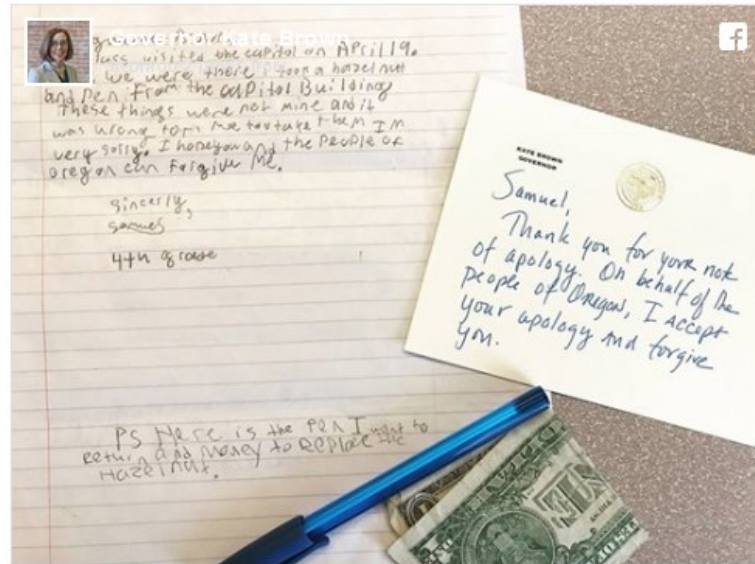 Governor Kate Brown
class visited the capitol on April 19.
we were there I took a hazelnut
and Pen From the caPitol Building
These things were not mine and it
was wrong for me too take them I'm
very sorry. I hope you and the People of
oregon can Forgive Me.
sincerly,
samuel
4th grade
PS Here is the Pen I want to
return and Money to RePlace the
Hazelnut.
KATE BROWN
GOVERNOR
Samuel,
Thank you for your note
of apology. On behalf of the
people of Oregon, I accept
your apology and forgive
you.
ONE